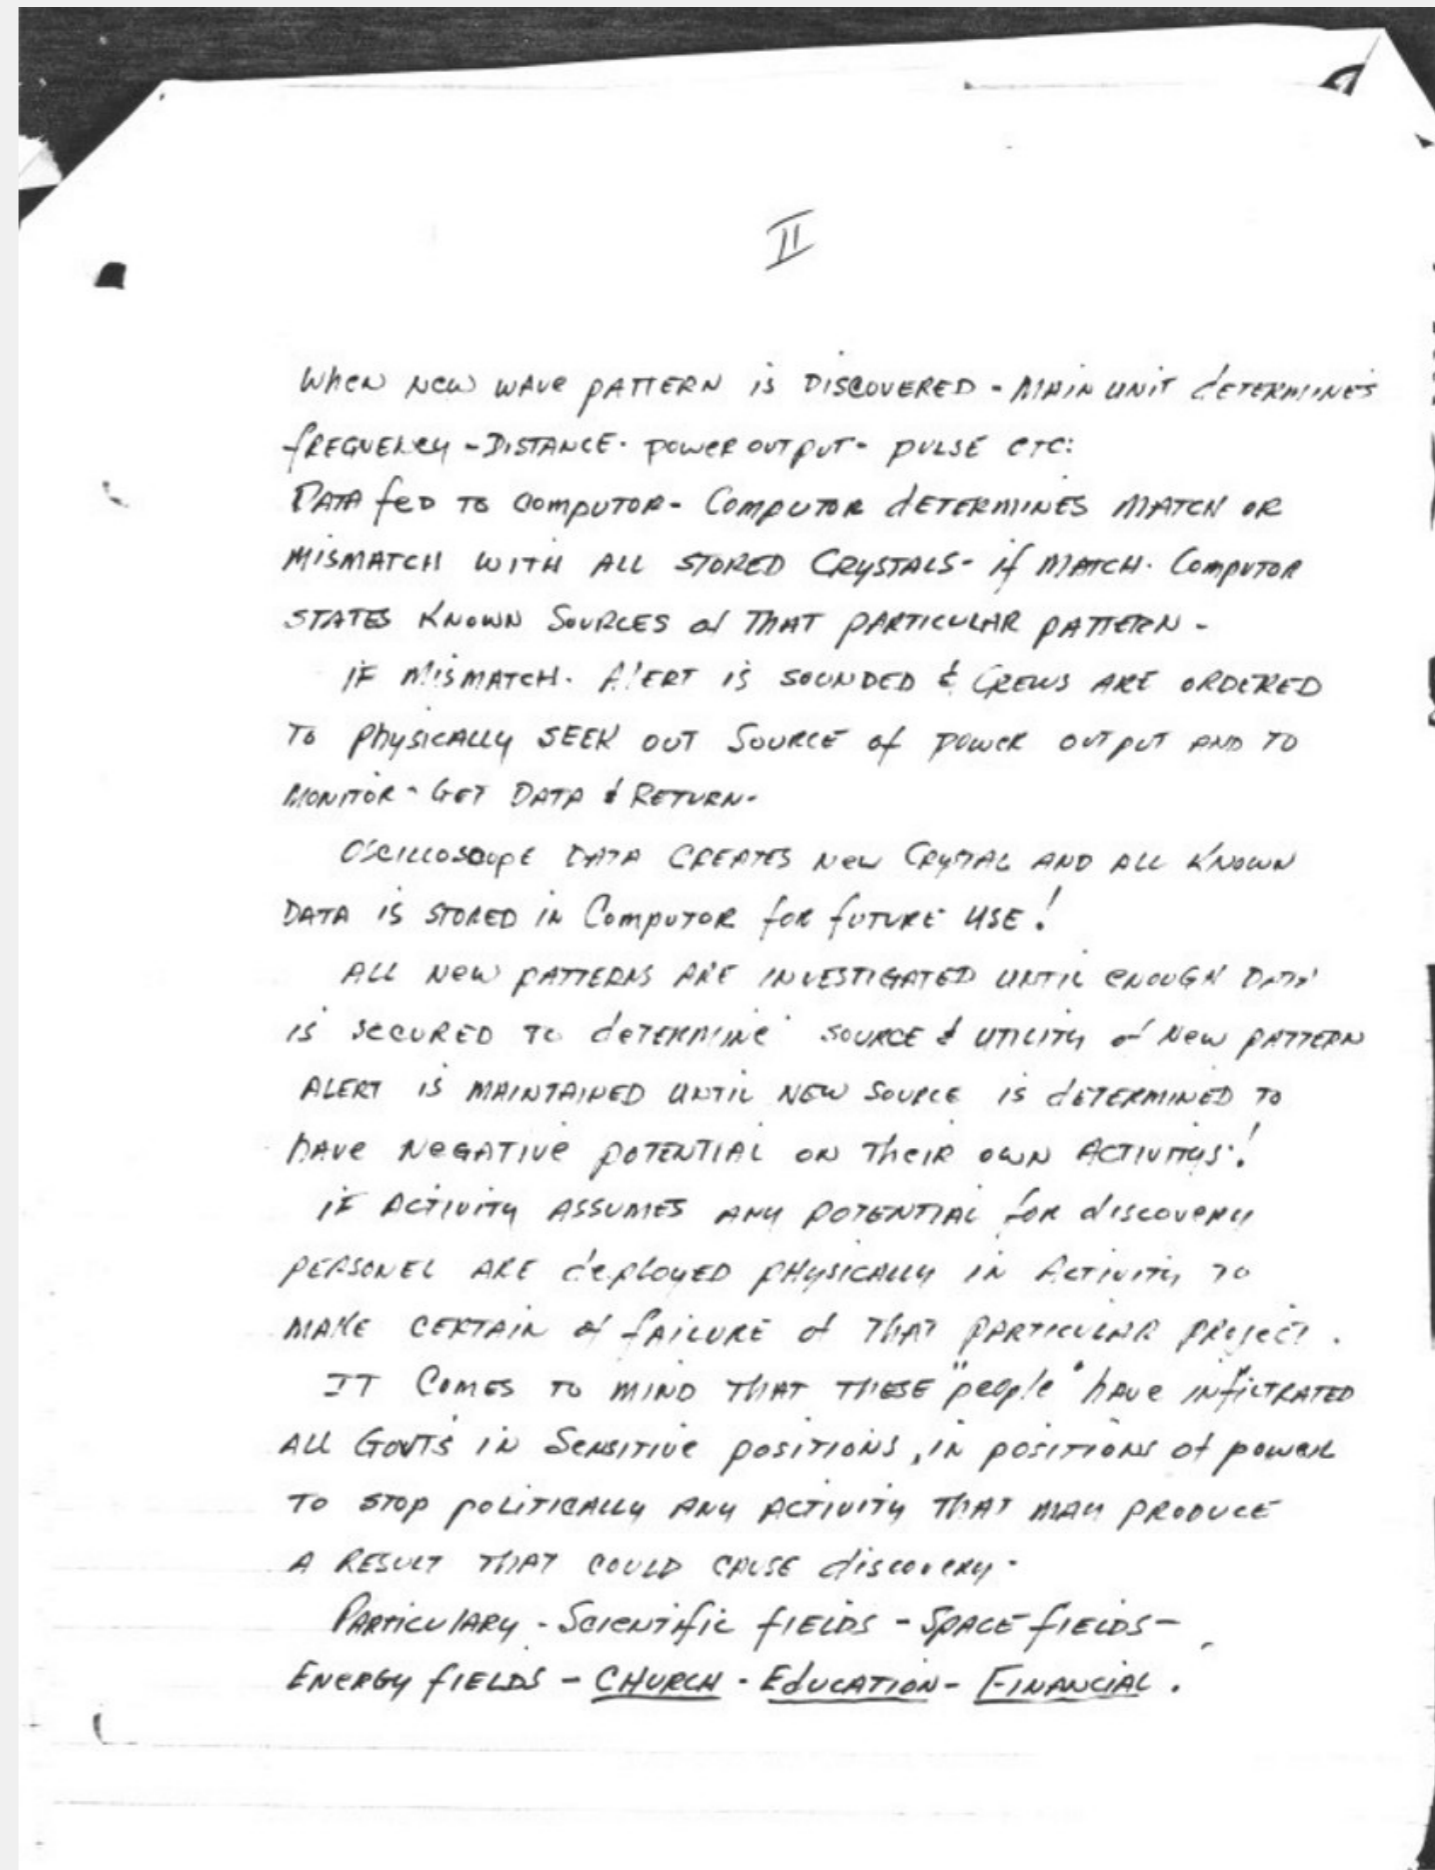 II
When new wave pattern is discovered - main unit determines
frequency - Distance - power output - pulse etc:
Data fed to computor - Computor determines match or
mismatch with all stored Crystals - if match - Computor
states known sources of that particular pattern -
if mismatch - Alert is sounded & crews are ordered
to physically seek out source of power output and to
monitor - Get data & return -
Oscilloscope data creates new crystal and all known
data is stored in Computor for future use!
All new patterns are investigated until enough data
is secured to determine source & utility of new pattern
Alert is maintained until new source is determined to
have negative potential on their own activitys!
if activity assumes any potential for discovery
personel are deployed physically in activity to
make certain of failure of that particular project.
It comes to mind that these "people" have infiltrated
all Govt's in sensitive positions, in positions of power
to stop politically any activity that may produce
a result that could cause discovery -
Particulary - Scientific fields - Space fields -
Energy fields - Church - Education - Financial.